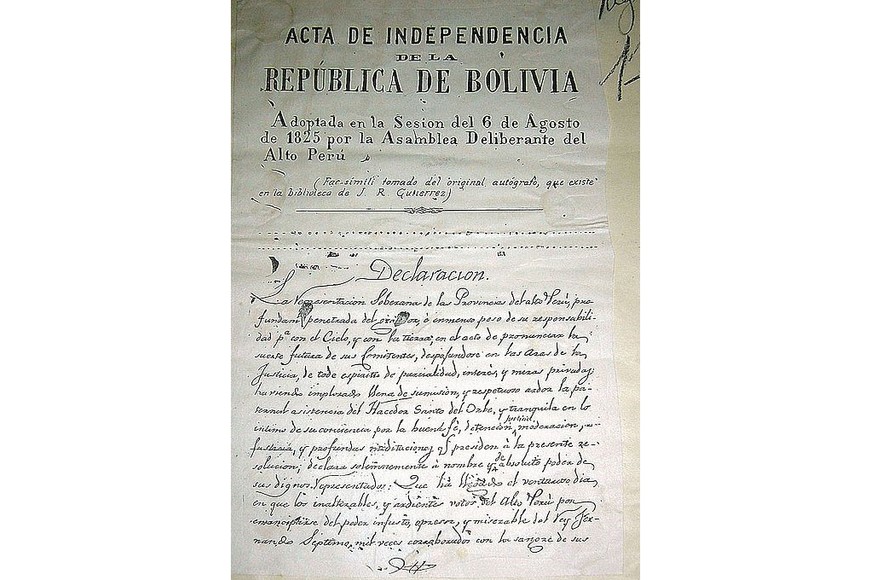 ACTA DE INDEPENDENCIA
DE LA
REPÚBLICA DE BOLIVIA
Adoptada en la Sesion del 6 de Agosto
de 1825 por la Asamblea Deliberante del
Alto Perú
(Fac-simili tomado del original autógrafo, que existe
en la biblioteca de J. R. Gutierrez)
Declaracion.
La Representacion Soberana de las Provincias del alto Perú, pro-
fundam penetrada del é inmenso peso de su responsabili
dad pª con el Cielo, y con la tierra, en el acto de pronunciar la
suerte futura de sus Comitentes, despojandose en las Aras de la
Justicia, de todo espiritu de parcialidad, interés, y miras privadas;
haviendo implorado llena de sumision, y respetuoso ardor la pa-
ternal asistencia del Hacedor Santo del Orbe, y tranquila en lo
intimo de su conciencia por la buena fé, detencion, justicia, moderacion,
y profundas meditaciones q presiden á la presente re-
solucion; declara solemnemente á nombre y absoluto poder de
sus dignos Representados: Que há llegado el venturoso dia
en que los inalterables, y ardientes votos del Alto Perú por
emanciparse del poder injusto, opresor, y miserable del Rey Fer-
nando Septimo, mil veces corroborados con la sangre de sus